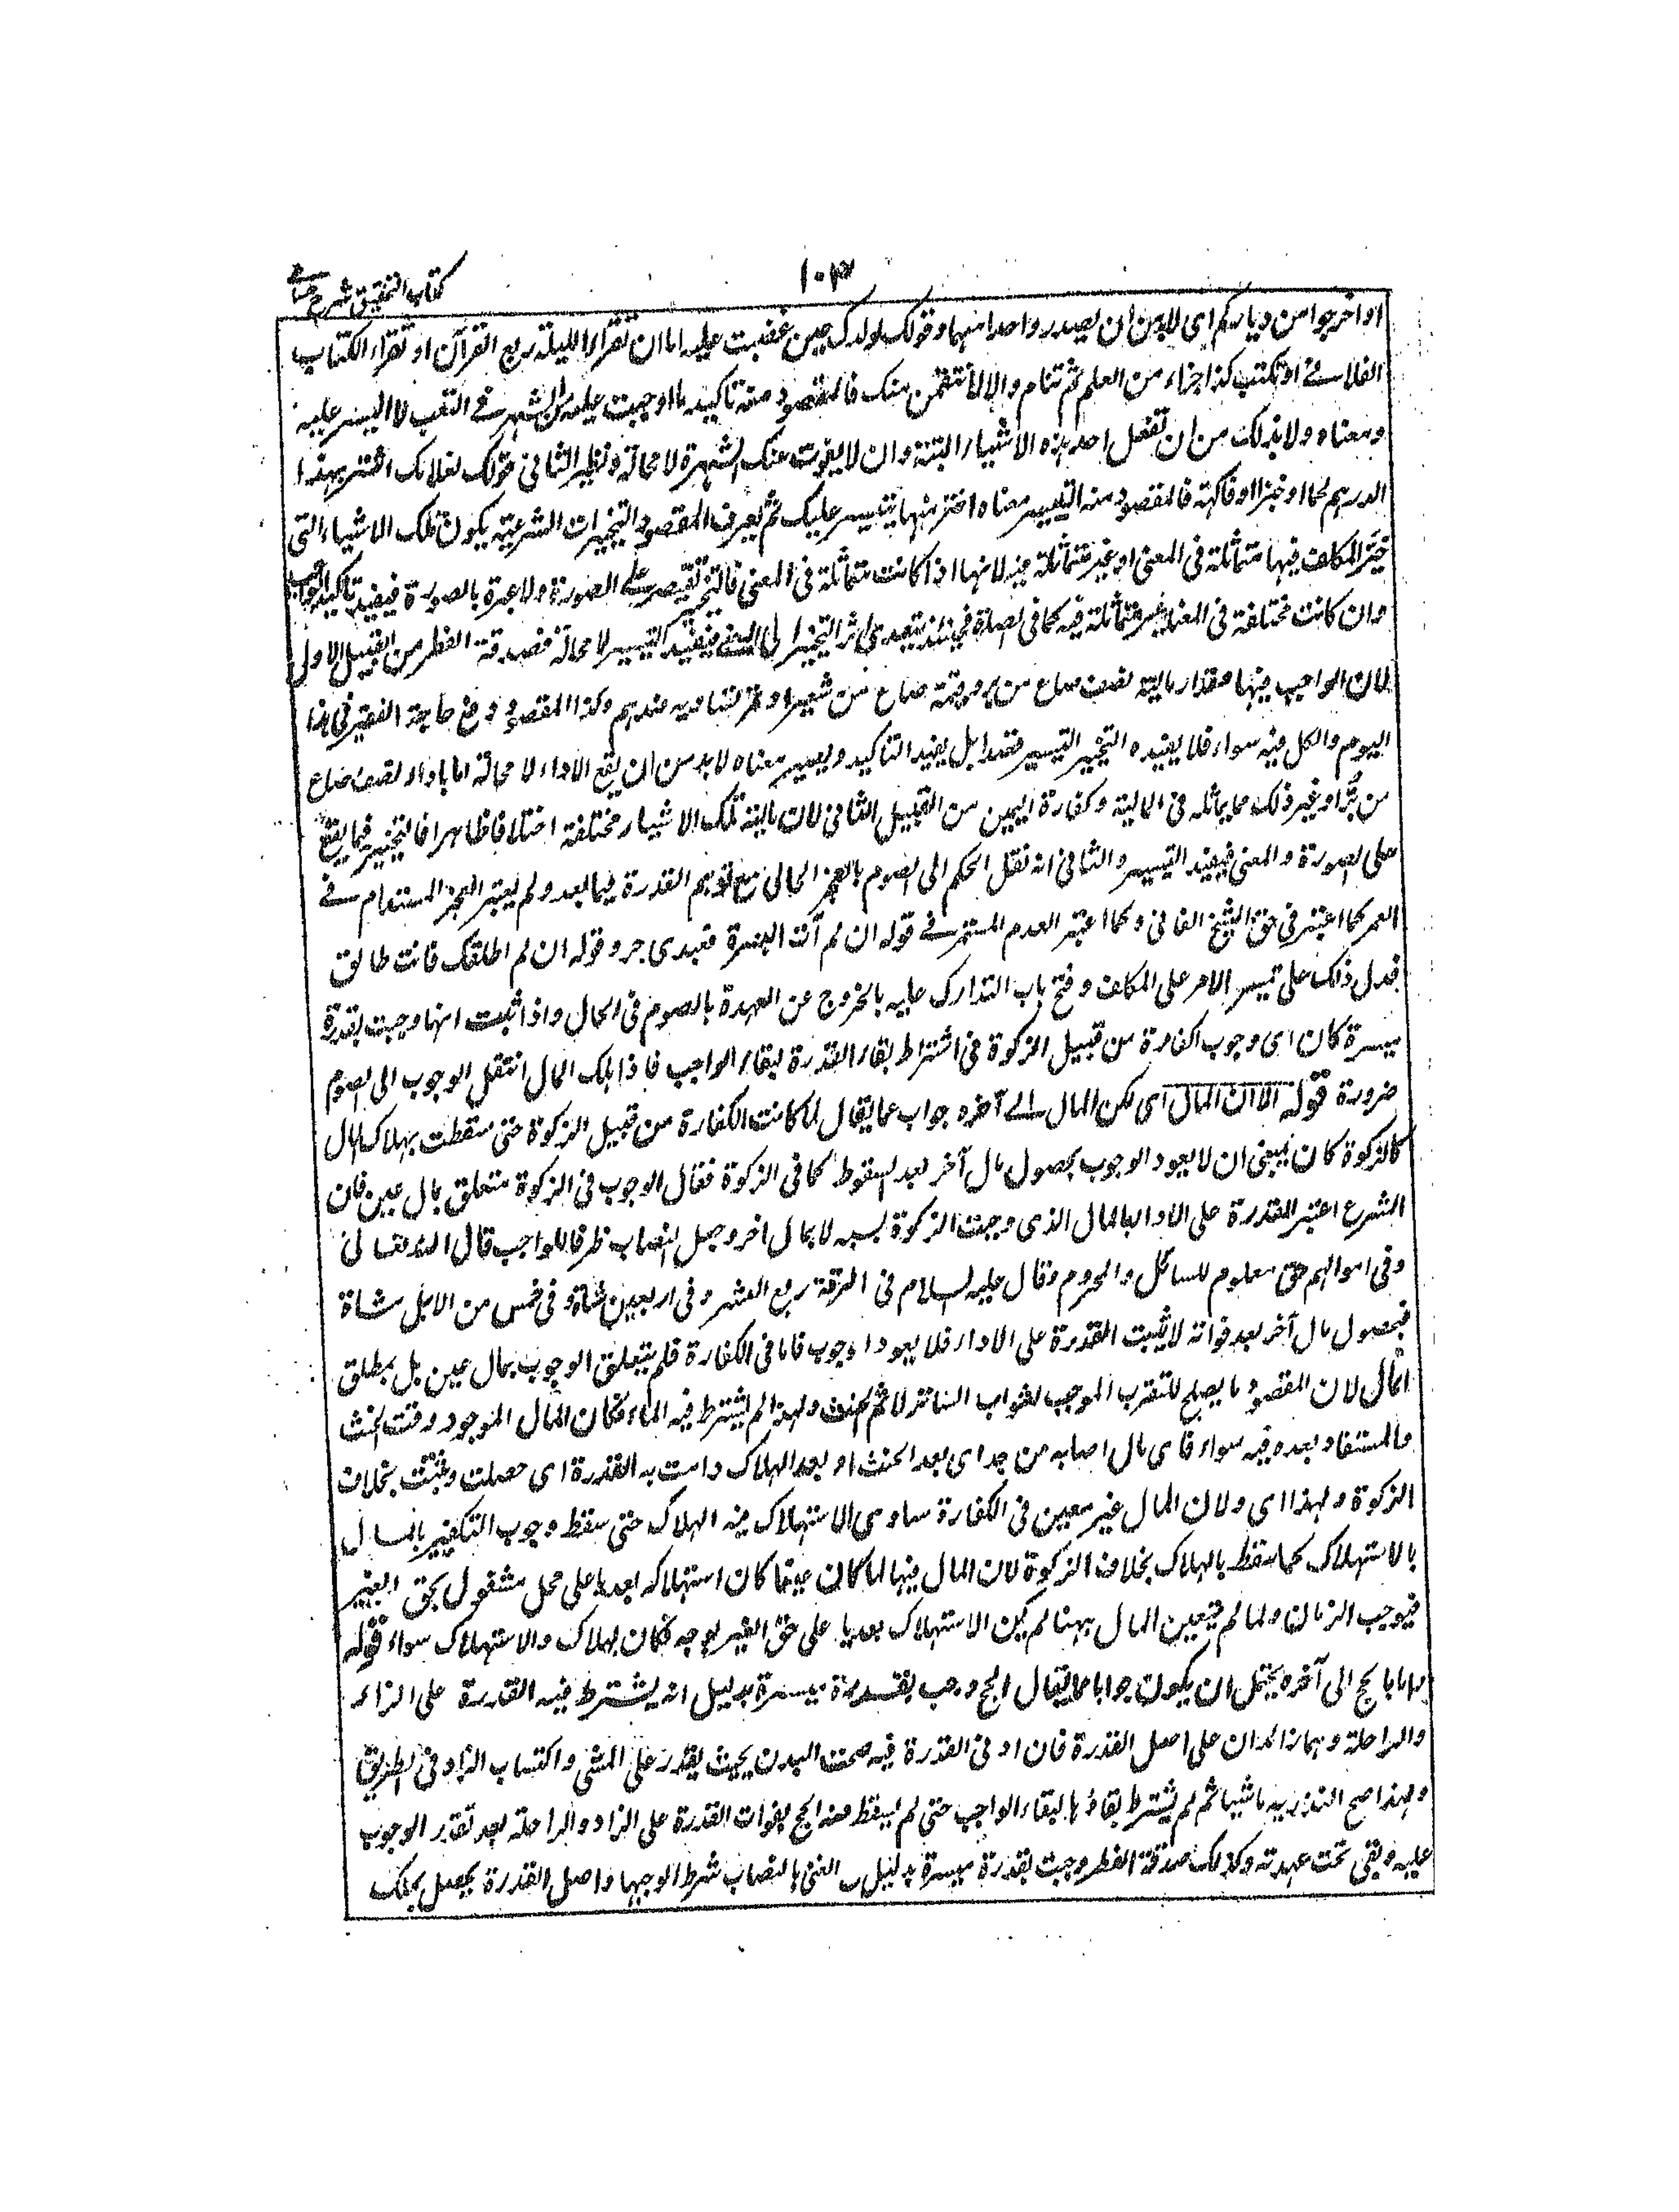 ١٠٣
كتاب التحقيق شرح حسامى
او اخرجوا من دياركم اى لابد من ان يصدر واحد منهما وقولك لولدك حين غضبت عليه اما ان تقرأ الليلة ربع القرآن او تقرأ الكتاب
الفلانى او تكتب كذا جزاء من العلم ثم تنام والا لأنتقمن منك فالمقصود منه تأكيد ما اوجبت عليه فى التعب لا اليسر عليه
ومعناه ولا بد لك من ان تفعل احد هذه الاشياء البتة وان لا يفوت عنك لا محالة ونظير الثانى قولك لغلامك اشتر بهذا
الدرهم لحما او خبزا او فاكهة فالمقصود منه التيسير معناه اختر منها يتيسر عليك ثم يعرف المقصود التخييرات الشرعية بكون تلك الاشياء التى
خير المكلف فيها متماثلة فى المعنى او غير متماثلة فيه لانها اذا كانت متماثلة فى المعنى فالتخيير يقتصر على الصورة ولا عبرة بالصورة فيفيد تاكيد الواجب
وان كانت مختلفة فى المعنى غير متماثلة فيه كما فى فحينئذ يتعدى اثر التخيير الى المعنى فيفيد التيسير لا محالة فصدقة الفطر من القبيل الاول
لان الواجب فيها مقدار مالية نصف صاع من بر وقيمة صاع من شعير او تمر تساويه عندهم وكذا المقصود دفع حاجة الفقير فى هذا
اليوم والكل فيه سواء فلا يفيده التخيير التيسير قصدا بل يفيد التاكيد ويصير معناه لابد من ان يقع الاداء لا محالة اما باداء نصف صاع
من بر او غير ذلك مما يماثله فى المالية وكفارة اليمين من القبيل الثانى لان مالية تلك الاشياء مختلفة اختلافا ظاهرا فالتخيير فيما يقع
على الصورة والمعنى فيفيد التيسير والثانى انه نقل الحكم الى الصوم بالعجز الحالى مع توهم القدرة فيما بعد ولم يعتبر العجز المستدام فى
العمر كما اعتبر فى حق الشيخ الفانى وكما اعتبر العدم المستمر فى قوله ان لم آت البصرة فعبدى حر وقوله ان لم اطلقك فانت طالق
فدل ذلك على تيسير الامر على المكلف وفتح باب التدارك عليه بالخروج عن العهدة بالصوم فى الحال واذا ثبت انها وجبت بقدرة
ميسرة كان اى وجوب الكفارة من قبيل الزكوة فى اشتراط بقاء القدرة لبقاء الواجب فاذا هلك المال انتقل الوجوب الى الصوم
ضرورة قوله الا ان المال اى لكن المال الى آخره جواب عما يقال لما كانت الكفارة من قبيل الزكوة حتى سقطت بهلاك المال
كالزكوة كان ينبغى ان لا يعود الوجوب بحصول مال آخر بعد السقوط كما فى الزكوة فقال الوجوب فى الزكوة متعلق بمال عين فان
الشرع اعتبر القدرة على الاداء بالمال الذى وجبت الزكوة بسببه لا بمال اخر وجعل النصاب ظرفا للواجب قال الله تعالى
وفى اموالهم حق معلوم للسائل والمحروم وقال عليه السلام فى الرقة ربع العشر وفى اربعين شاة شاة وفى خمس من الابل شاة
فبحصول مال آخر بعد فواته لا يثبت القدرة على الاداء فلا يعود الوجوب فاما فى الكفارة فلم يتعلق الوجوب بمال عين بل بمطلق
المال لان المقصود ما يصلح للتقرب الموجب لثواب الساتر لاثم الحنث ولهذا لم يشترط فيه النماء فكان المال الموجود وقت الحنث
والمستفاد بعده فيه سواء فاى مال اصابه من بعد اى بعد الحنث او بعد الهلاك دامت به القدرة اى حصلت وثبتت بخلاف
الزكوة ولهذا اى ولان المال غير معين فى الكفارة ساوى الاستهلاك فيه الهلاك حتى سقط وجوب التكفير بالمال
بالاستهلاك كما سقط بالهلاك بخلاف الزكوة لان المال فيها لما كان عينا كان استهلاكه تعديا على محل مشغول بحق الغير
فيوجب الضمان ولما لم يتعين المال ههنا لم يكن الاستهلاك تعديا على حق الغير بوجه فكان الهلاك والاستهلاك سواء قوله
واما بالحج الى آخره يحتمل ان يكون جوابا عما يقال الحج وجب بقدرة ميسرة بدليل انه يشترط فيه القدرة على الزاد
والراحلة وهما زائدان على اصل القدرة فان ادنى القدرة فيه صحة البدن بحيث يقدر على المشى واكتساب الزاد فى الطريق
ولهذا صح النذر به ماشيا ثم لم يشترط بقاؤها لبقاء الواجب حتى لم يسقط عنه الحج بفوات القدرة على الزاد والراحلة بعد تقرر الوجوب
عليه وبقى تحت عهدته وكذلك صدقة الفطر وجبت بقدرة ميسرة بدليل الغنى بالنصاب شرط لوجوبها واصل القدرة يحصل بملك